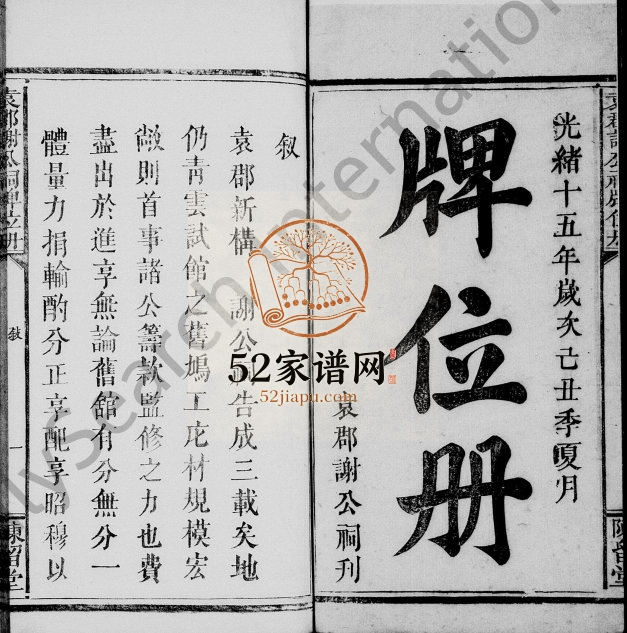 光緒十五年歲次己丑季夏月
牌位册
袁郡謝公祠刊
陳留堂
叙
袁郡新構 謝公 告成三載矣地
仍靑雲試館之舊鳩工庀材規模宏
敞則首事諸公籌欵監修之力也費
盡出於進享無論舊館有分無分一
體量力捐輸酌分正享配享昭穆以
袁郡謝公祠牌位册
叙
一
陳留堂
52家谱网
52jiapu.com